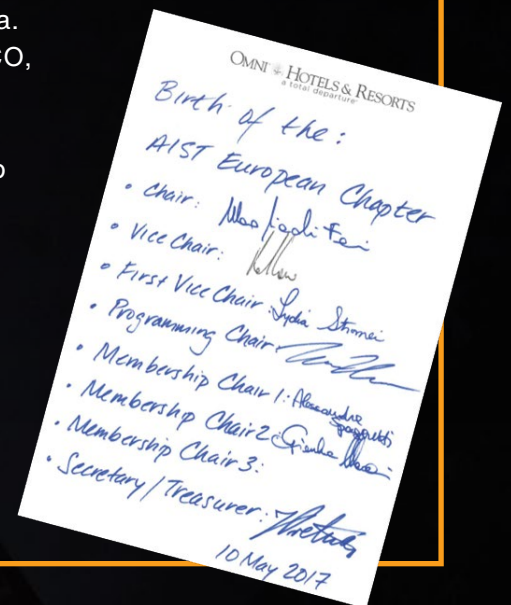 a.
CO,
OMNI HOTELS & RESORTS
a total departure
Birth of the:
AIST European Chapter
• Chair:
• Vice Chair:
• First Vice Chair: Lydia
• Programming Chair:
• Membership Chair 1: Alessandra
• Membership Chair 2:
• Membership Chair 3:
• Secretary / Treasurer:
10 May 2017